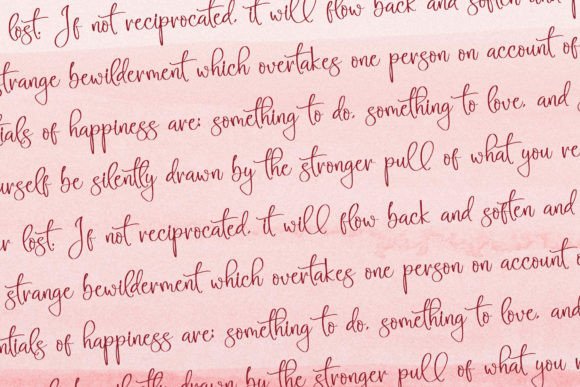 lost. If not reciprocated, it will flow back and soften and p
strange bewilderment which overtakes one person on account of
ntials of happiness are: something to do, something to love, and
urself be silently drawn by the stronger pull of what you re
r lost. If not reciprocated, it will flow back and soften and
strange bewilderment which overtakes one person on account o
ntials of happiness are: something to do, something to love, and
be silently drawn by the stronger pull of what you re